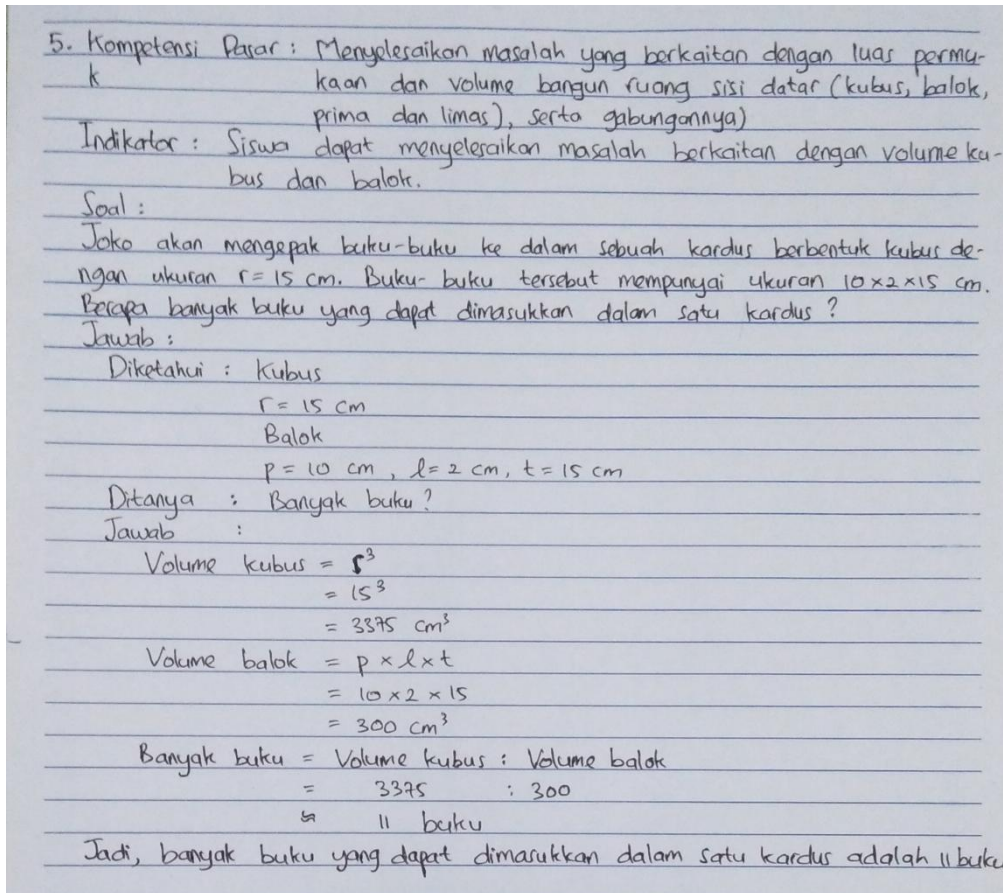 5. Kompetensi Dasar : Menyelesaikan masalah yang berkaitan dengan luas permu-
k kaan dan volume bangun ruang sisi datar (kubus, balok,
prima dan limas), serta gabungannya)
Indikator : Siswa dapat menyelesaikan masalah berkaitan dengan volume ku-
bus dan balok.
Soal :
Joko akan mengepak buku-buku ke dalam sebuah kardus berbentuk kubus de-
ngan ukuran r = 15 cm. Buku-buku tersebut mempunyai ukuran 10 × 2 × 15 cm.
Berapa banyak buku yang dapat dimasukkan dalam satu kardus ?
Jawab :
Diketahui : Kubus
r = 15 cm
Balok
p = 10 cm , l = 2 cm, t = 15 cm
Ditanya : Banyak buku ?
Jawab :
Volume kubus = r³
= 15³
= 3375 cm³
Volume balok = p × l × t
= 10 × 2 × 15
= 300 cm³
Banyak buku = Volume kubus : Volume balok
= 3375 : 300
≈ 11 buku
Jadi, banyak buku yang dapat dimasukkan dalam satu kardus adalah 11 buku